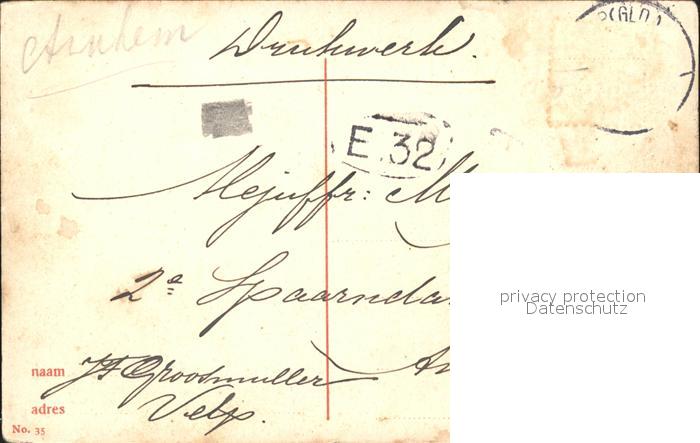 Arnhem
Drukwerk.
(GLD.)
E.32
Mejuffr: M
2e Spaarnda
privacy protection
Datenschutz
naam JF Grootmuller
adres Velp.
No. 35